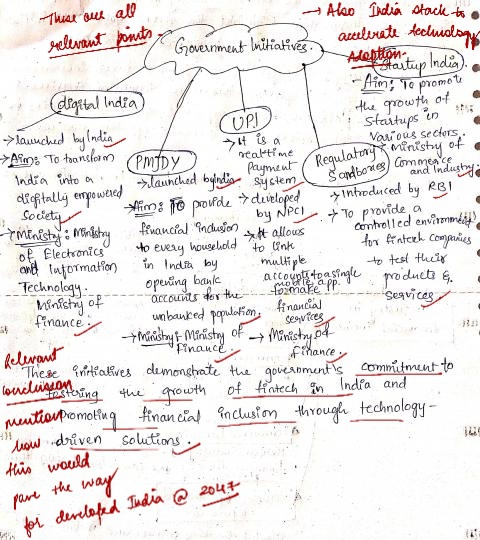 These are all
relevant points.
→ Also India stack to
accelerate technology
Adoption.
Government Initiatives.
Startup India.
- Aim: To promote
the growth of
Startups in
various sectors.
→ Ministry of
Commerce
and Industry.
digital India
→ launched by India
→ Aim: To transform
India into a
digitally empowered
Society.
→ Ministry: Ministry
of Electronics
and Information
Technology.
Ministry of
finance.
PMJDY
→ launched by India
→ Aim: To provide
financial inclusion
to every household
in India by
opening bank
accounts for the
unbanked population.
→ Ministry: Ministry of
Finance.
UPI
→ It is a
realtime
Payment
system
→ developed
by NPCI
→ It allows
to link
multiple
accounts to a single
mobile app.
to make
financial
services
→ Ministry of
finance.
Regulatory
Sandboxes
→ Introduced by RBI
→ To provide a
controlled environment
for fintech companies
to test their
products &
Services.
These initiatives demonstrate the government's commitment to
fostering the growth of fintech in India and
promoting financial inclusion through technology-
driven solutions.
Relevant
conclusion
mention
how
this would
pave the way
for developed India @ 2047